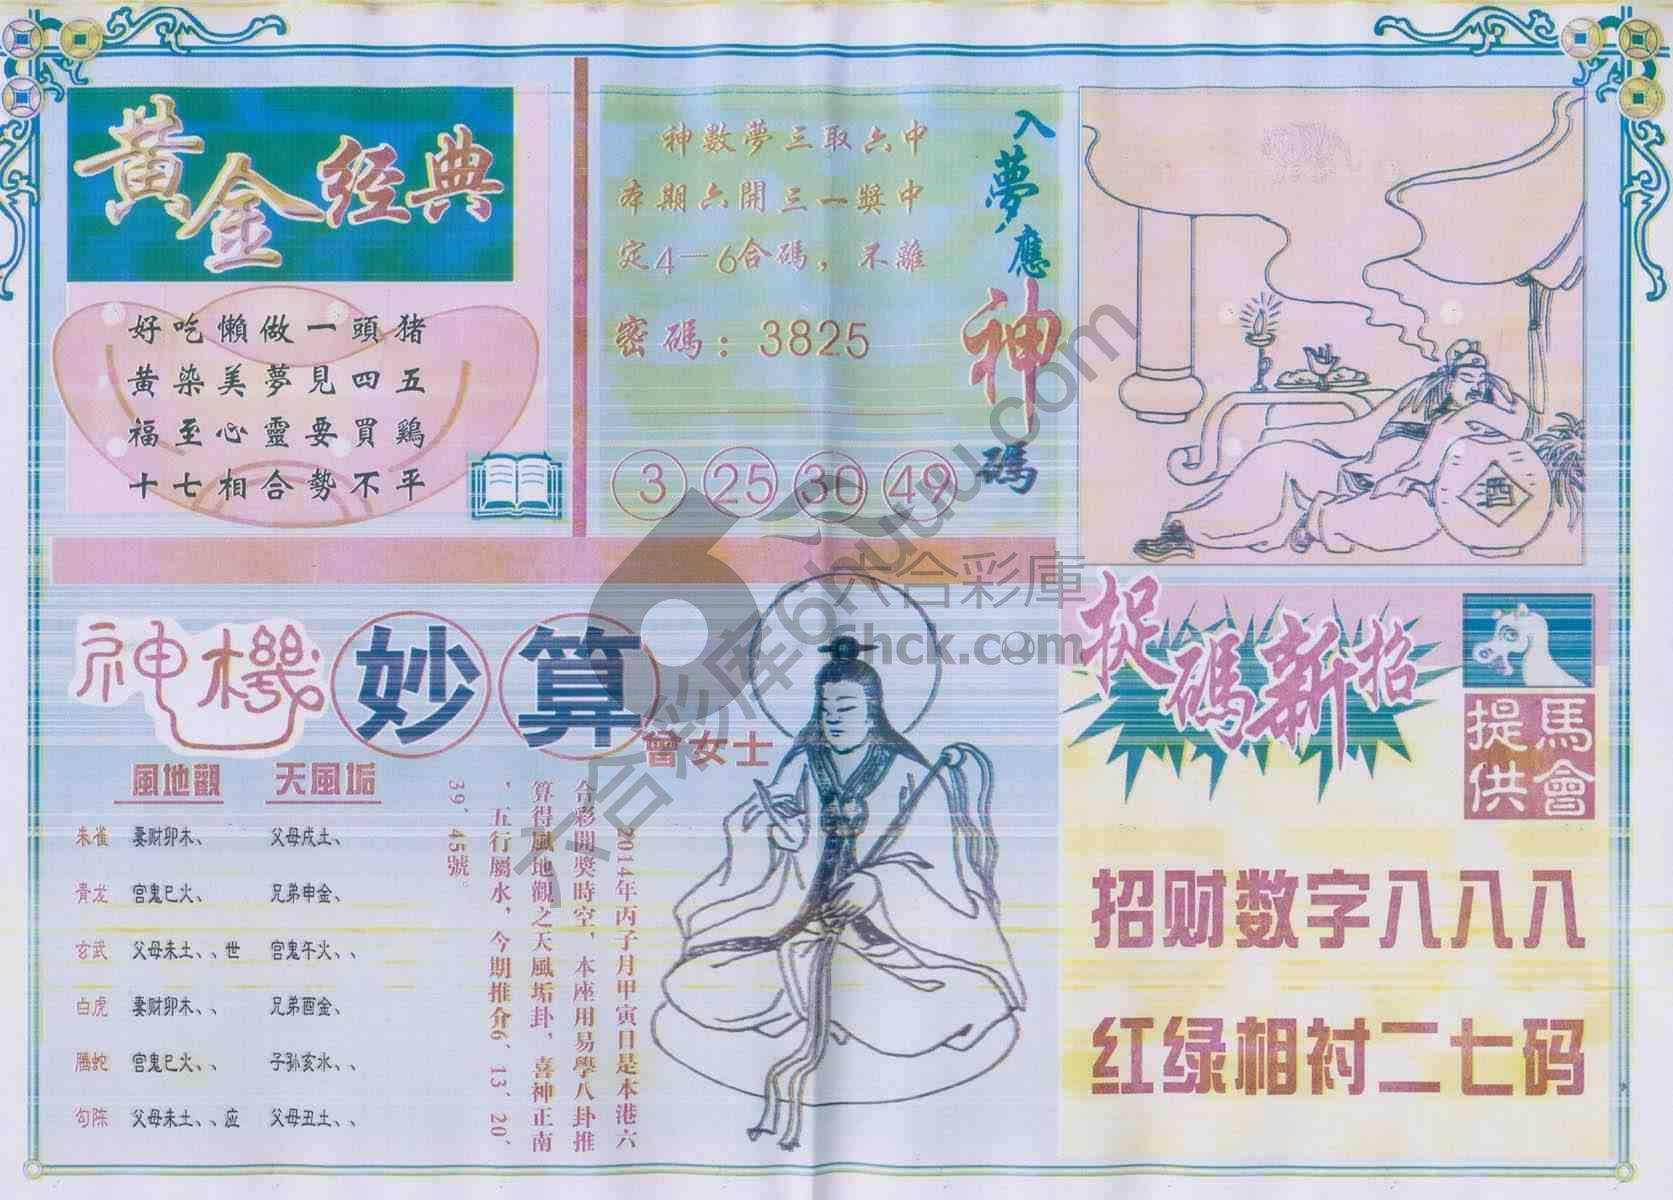 黄金经典
好吃懶做一頭猪
黄染美夢見四五
福至心靈要買鷄
十七相合勢不平
神數夢三取六中
本期六開三一獎中
定4—6合碼，不離
密碼：3825
3 25 30 49
入夢應神碼
酒
神機妙算
曾女士
風地觀 天風垢
朱雀 妻财卯木、 父母戌土、
青龙 宫鬼巳火、 兄弟申金、
玄武 父母未土、、世 宫鬼午火、、
白虎 妻财卯木、、 兄弟酉金、
腾蛇 宫鬼巳火、、 子孙亥水、、
句陈 父母未土、、应 父母丑土、、
2014年丙子月甲寅日是本港六
合彩開獎時空，本座用易學八卦推
算得風地觀之天風垢卦，喜神正南
，五行屬水，今期推介6、13、20、
39、45號。
捉碼新招
馬會
提供
招财数字八八八
红绿相衬二七码
六合彩庫
6hck.com
六合彩库6huuu.com